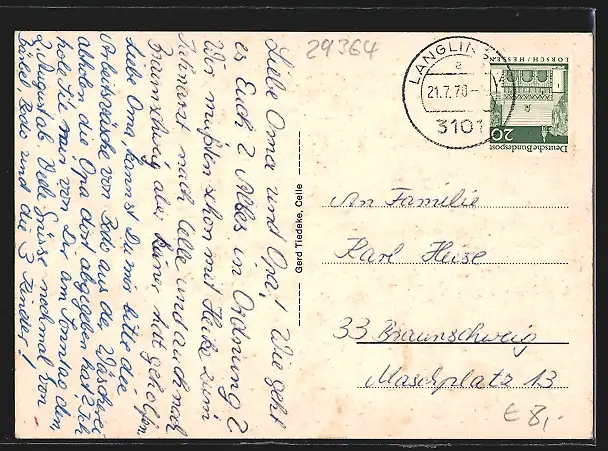 29364
LANGLINGEN
a
21.7.70
3101
LORSCH/HESSEN
20
Deutsche Bundespost
Liebe Oma und Opa! Wie geht
es Euch 2 Alles in Ordnung?
Wir mußten schon mit Heike zum
Zahnarzt nach Celle und auch nach
Braunschweig aber keiner hat geholfen.
Liebe Oma kannst Du mir bitte die
Arbeitswäsche von Bodo aus der Wäscherei
abholen die Opa dort abgegeben hat? Ich
hole sie mir von Dir am Sonntag dem
2. August ab. Viele Grüsse nochmal von
Bärbel, Bodo und die 3 Kinder!
Gerd Tiedeke, Celle
An Familie
Karl Heise
33 Braunschweig
Maschplatz 13
€ 8,-